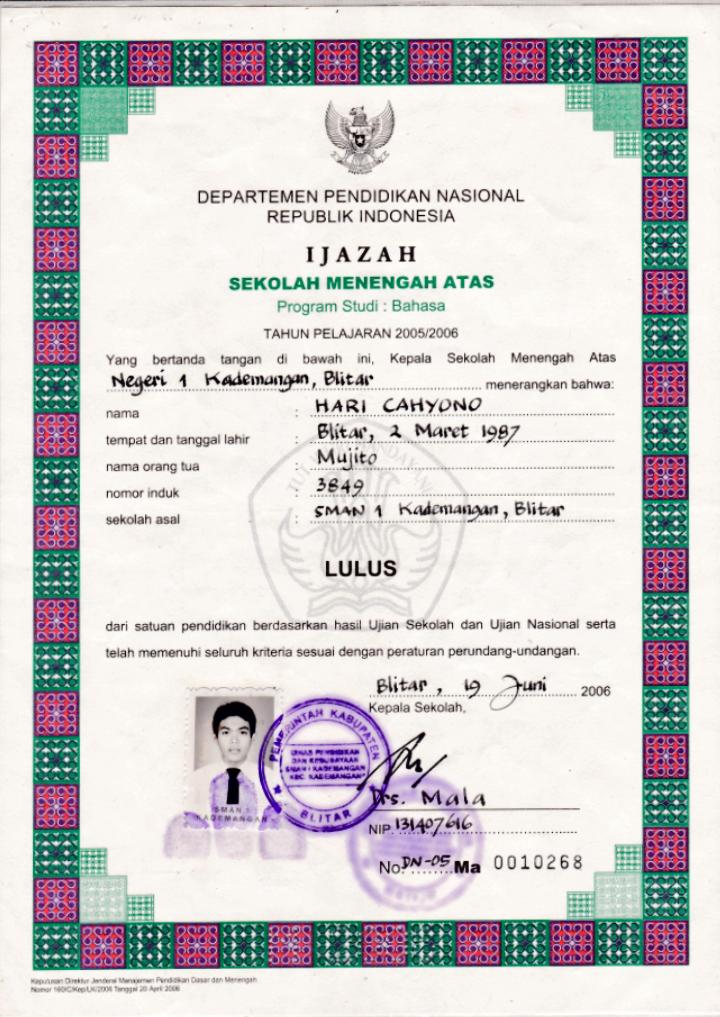 DEPARTEMEN PENDIDIKAN NASIONAL
REPUBLIK INDONESIA
IJAZAH
SEKOLAH MENENGAH ATAS
Program Studi : Bahasa
TAHUN PELAJARAN 2005/2006
Yang bertanda tangan di bawah ini, Kepala Sekolah Menengah Atas
Negeri 1 Kademangan, Blitar menerangkan bahwa:
nama : HARI CAHYONO
tempat dan tanggal lahir : Blitar, 2 Maret 1987
nama orang tua : Mujito
nomor induk : 3849
sekolah asal : SMAN 1 Kademangan, Blitar
LULUS
dari satuan pendidikan berdasarkan hasil Ujian Sekolah dan Ujian Nasional serta
telah memenuhi seluruh kriteria sesuai dengan peraturan perundang-undangan.
Blitar, 19 Juni 2006
Kepala Sekolah,
PEMERINTAH KABUPATEN
DINAS PENDIDIKAN
DAN KEBUDAYAAN
SMAN 1 KADEMANGAN
KEC. KADEMANGAN
BLITAR
SMAN 1
KADEMANGAN
Drs. Mala
NIP. 131407616
No. DN-05 Ma 0010268
Keputusan Direktur Jenderal Manajemen Pendidikan Dasar dan Menengah
Nomor 160/C/Kep/LK/2006 Tanggal 20 April 2006